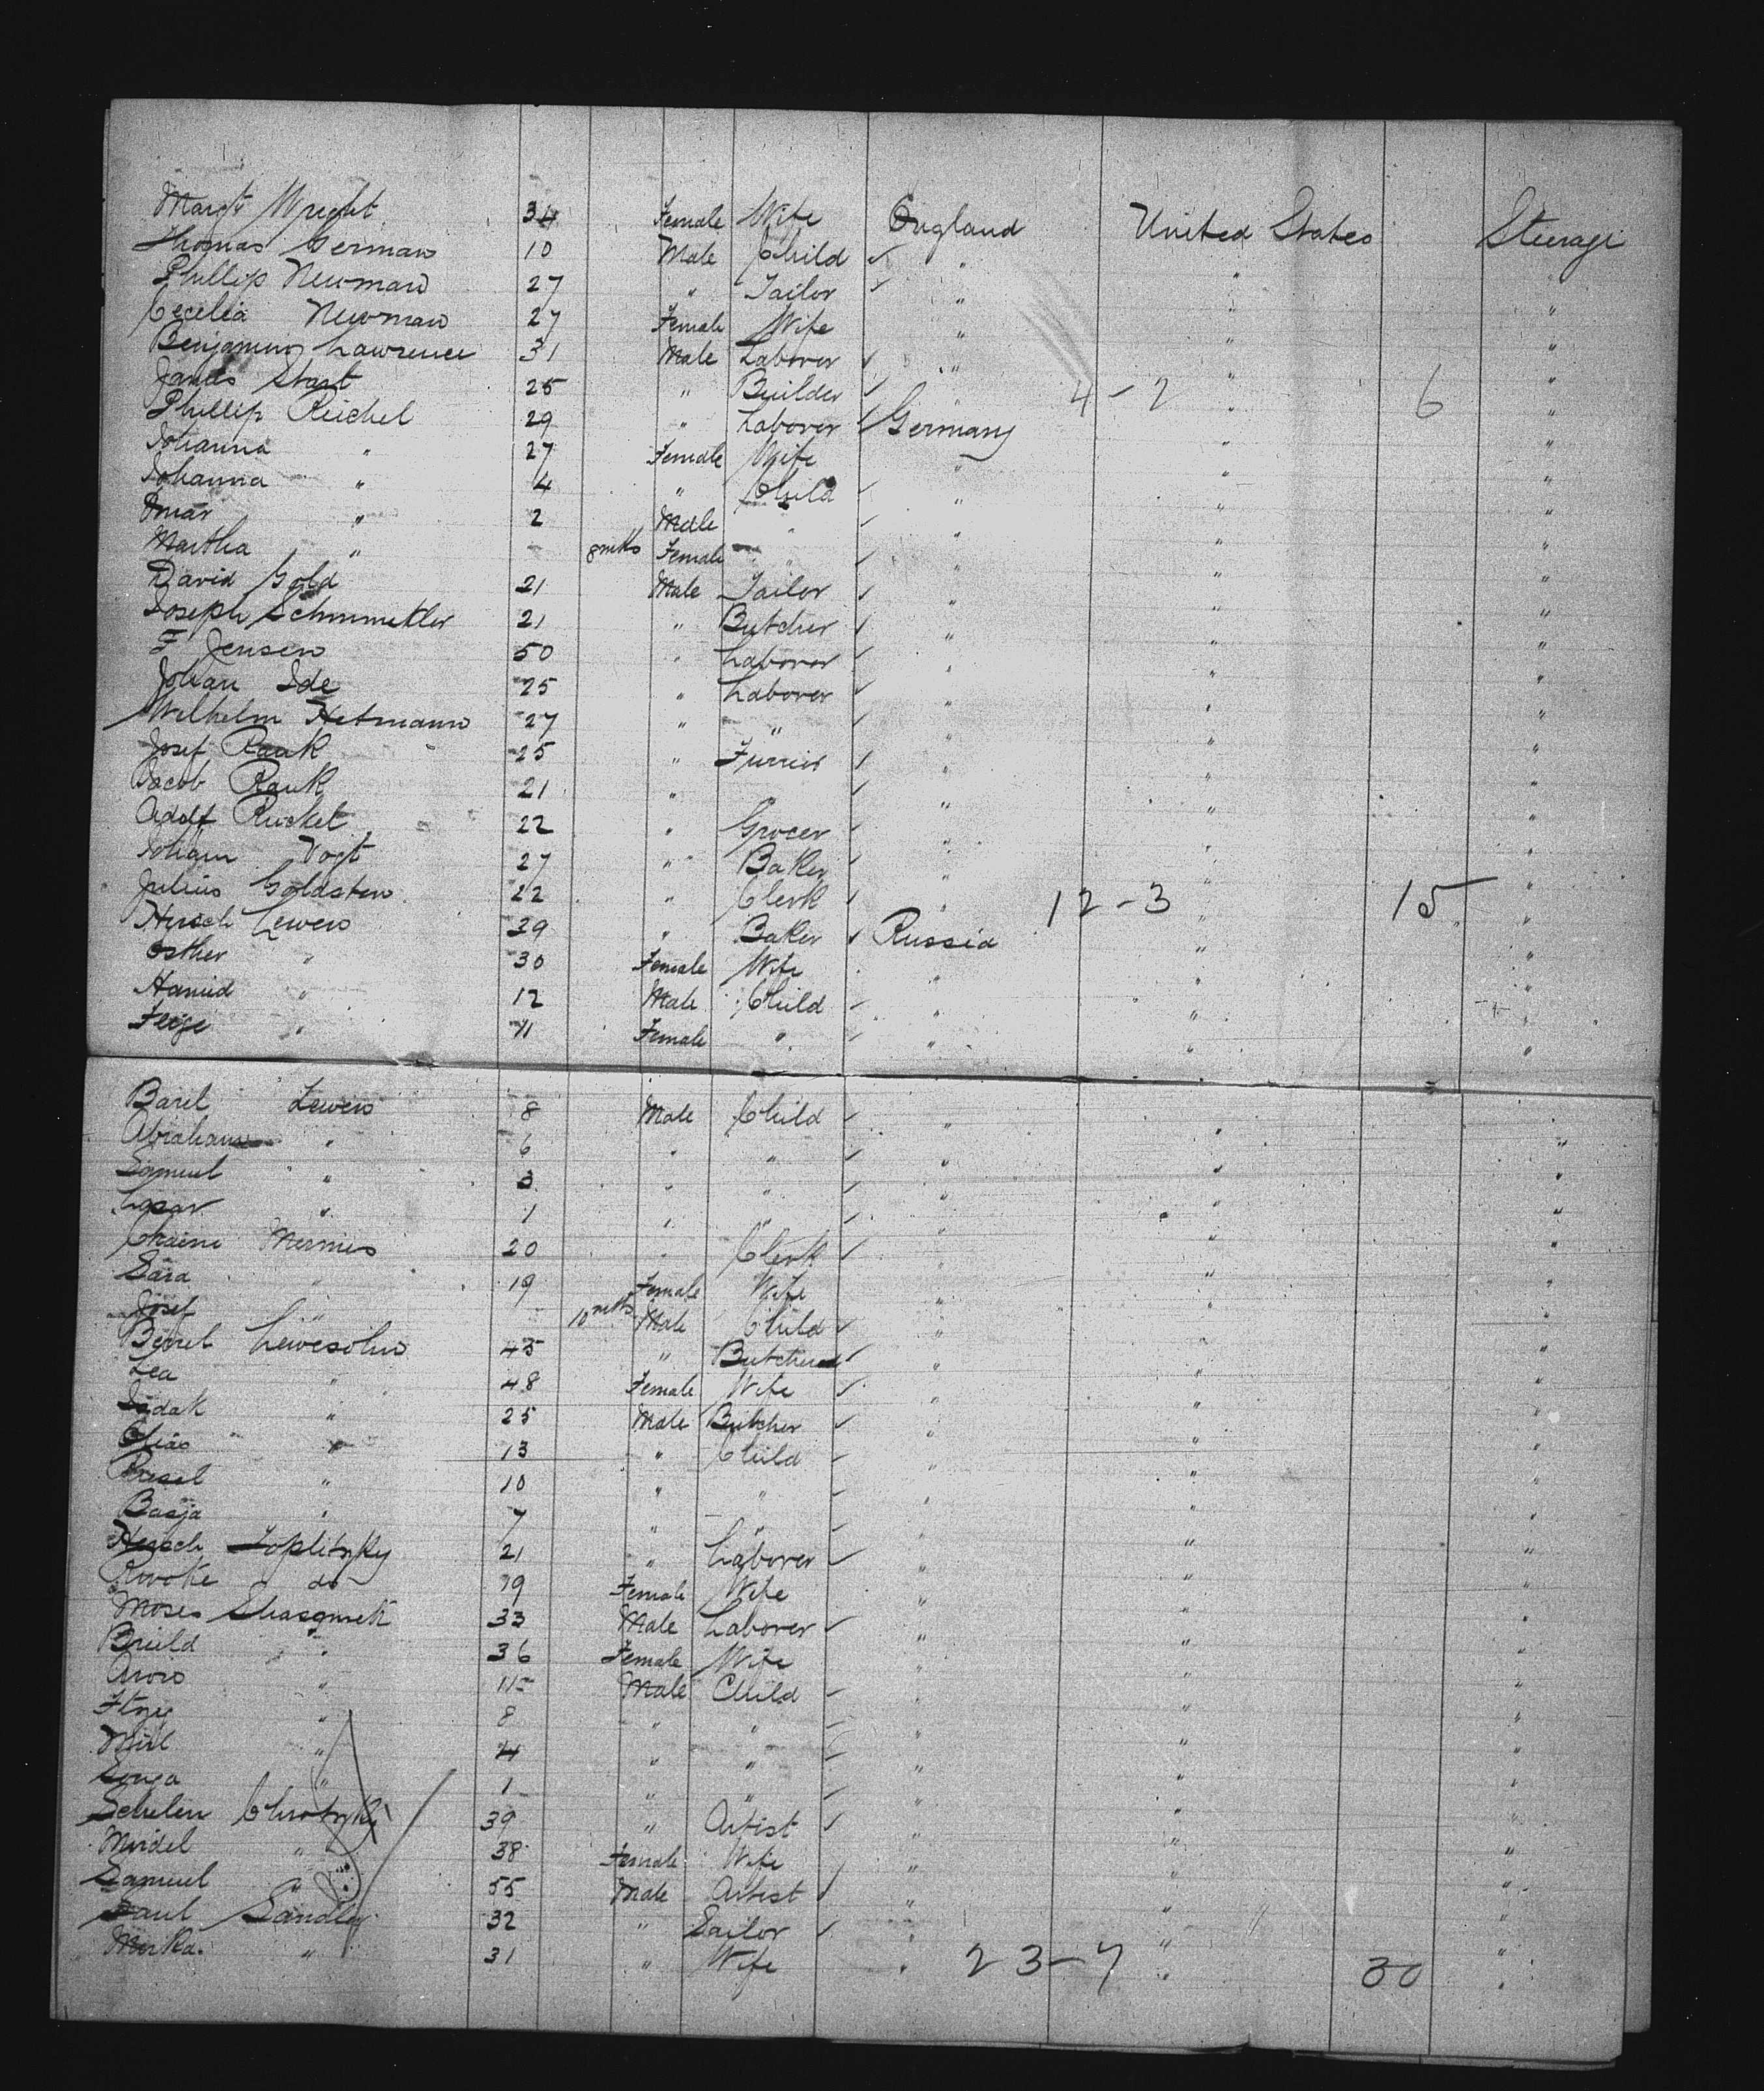 Margt Wright 34 Female Wife England United States Steerage
Thomas German 10 Male Child ✓ " " "
Phillip Newman 27 " Tailor ✓ " " "
Cecelia Newman 27 Female Wife " " "
Benjamin Lawrence 31 Male Laborer ✓ " " "
James Start 25 " Builder ✓ " 4-2 " 6 "
Phillip Reichel 29 " Laborer ✓ Germany " "
Johanna " 27 Female Wife " " "
Johanna " 4 " Child ✓ " " "
" 2 Male " ✓ " " "
Martha " 8 mths Female " ✓ " " "
David Gold 21 Male Tailor ✓ " " "
Joseph 21 " Butcher ✓ " " "
F Jensen 50 " Laborer ✓ " " "
Johan Ide 25 " Laborer ✓ " " "
Wilhelm Hetmann 27 " " ✓ " " "
Josef Rauk 25 " Furrier ✓ " " "
Jacob Rauk 21 " " ✓ " " "
Adolf Rucket 22 " Grocer ✓ " " "
Johann Vogt 27 " Baker ✓ " " "
Julius Goldstein 22 " Clerk ✓ " 12-3 " 15 "
Hirsch Lewen 39 " Baker ✓ Russia " "
Esther " 30 Female Wife " " "
" 12 Male Child ✓ " " "
Feige " 11 Female " ✓ " " "
Barel Lewen 8 Male Child ✓ " " "
Abraham " 6 " " ✓ " " "
Samuel " 3 " " ✓ " " "
Lasar " 1 " " ✓ " " "
Chaine 20 " Clerk ✓ " " "
Sara " 19 Female Wife " " "
Josef " 10 mths Male Child ✓ " " "
Lewesohn 45 " Butcher ✓ " " "
Lea " 48 Female Wife ✓ " " "
Sadak " 25 Male Butcher ✓ " " "
Elias " 13 " Child ✓ " " "
" 10 " " ✓ " " "
Basja " 7 " " ✓ " " "
Hersch Toplitzky 21 " Laborer ✓ " " "
Rivoke do 19 Female Wife " " "
Moses 33 Male Laborer ✓ " " "
" 36 Female Wife " " "
" 11 Male Child ✓ " " "
" 8 " " ✓ " " "
" 4 " " ✓ " " "
" 1 " " ✓ " " "
39 " Artist ✓ " " "
" 38 Female Wife " " "
Samuel " 55 Male Artist ✓ " " "
Saul Sandler 32 " Tailor ✓ " " "
" 31 " Wife " 23-7 " 30 "